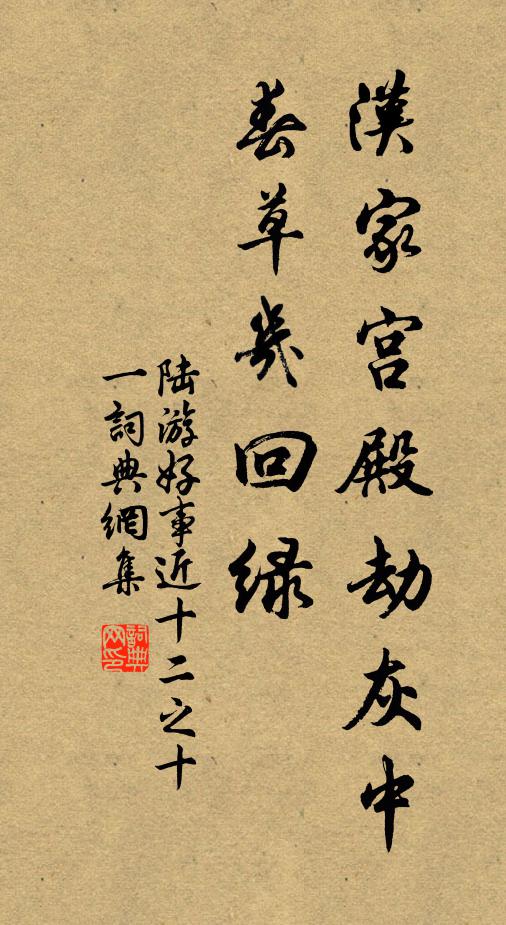 漢家宮殿劫灰中
春草幾回綠
陆游好事近十二之十
一詞典網集
詞典网印